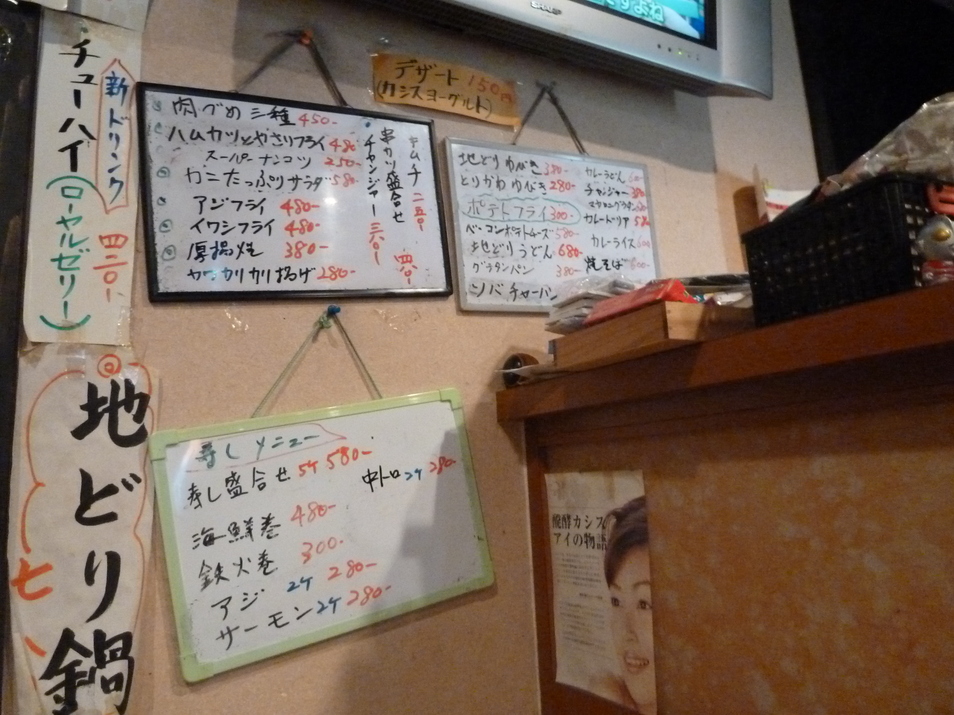 新ドリンク
チューハイ(ローヤルゼリー)
四二〇-
地どり鍋
七
デザート 150円
(カシスヨーグルト)
SHARP
肉づめ三種 450-
ハムカツとやさいフライ 480
スーパーナンコツ 250-
カニたっぷりサラダ 580-
アジフライ 480-
イワシフライ 480-
厚揚焼 380-
カワカリカリ揚げ 280-
キムチ 二五〇-
串カツ盛合せ
チャンジャー 三八〇-
地どりゆびき 380-
とりかわゆびき 280-
ポテトフライ 300-
ベーコンポテトチーズ 580-
地どりうどん 680-
グラタンパン 380-
ソバチャーハン
カレーうどん
チャンジャー 380
カレードリア
カレーライス
焼そば
寿しメニュー
寿し盛合せ 5ケ 580-
海鮮巻 480-
鉄火巻 300-
アジ 2ケ 280-
サーモン 2ケ 280-
中トロ 2ケ 280-
醗酵カシス
アイの物語